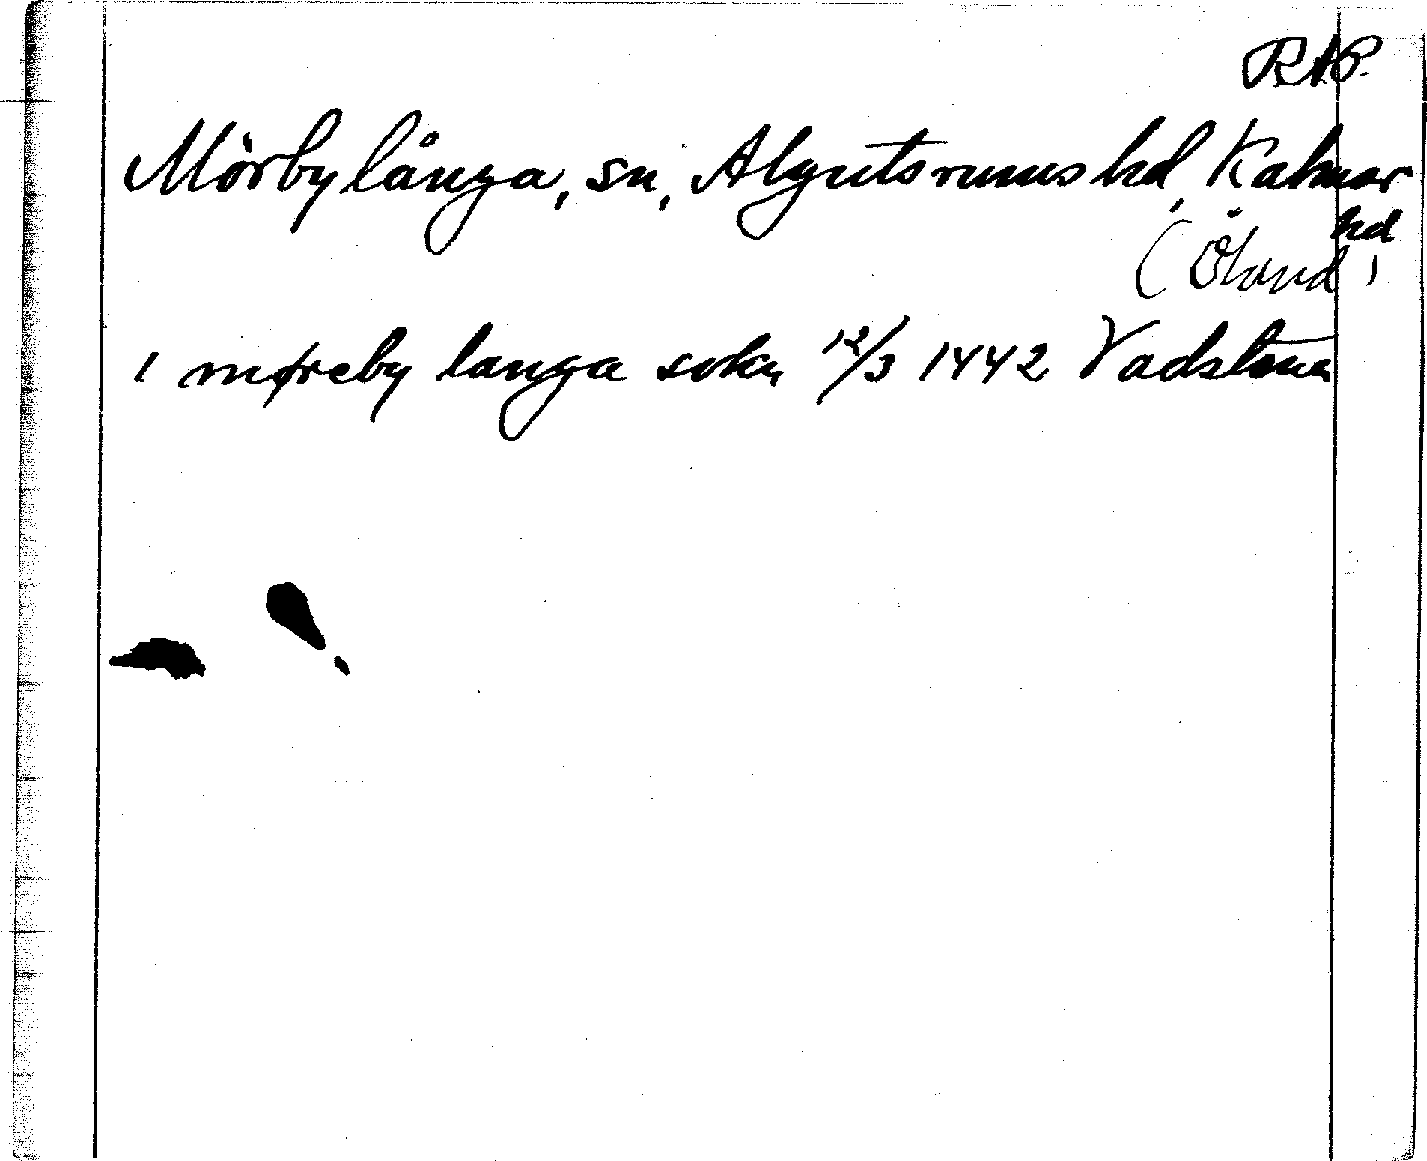 RAP.
Mörbylånga, sn, Algutsrums hd, Kalmar
hd
(Öland)
i møreby langa sokn 12/3 1442 Vadstena